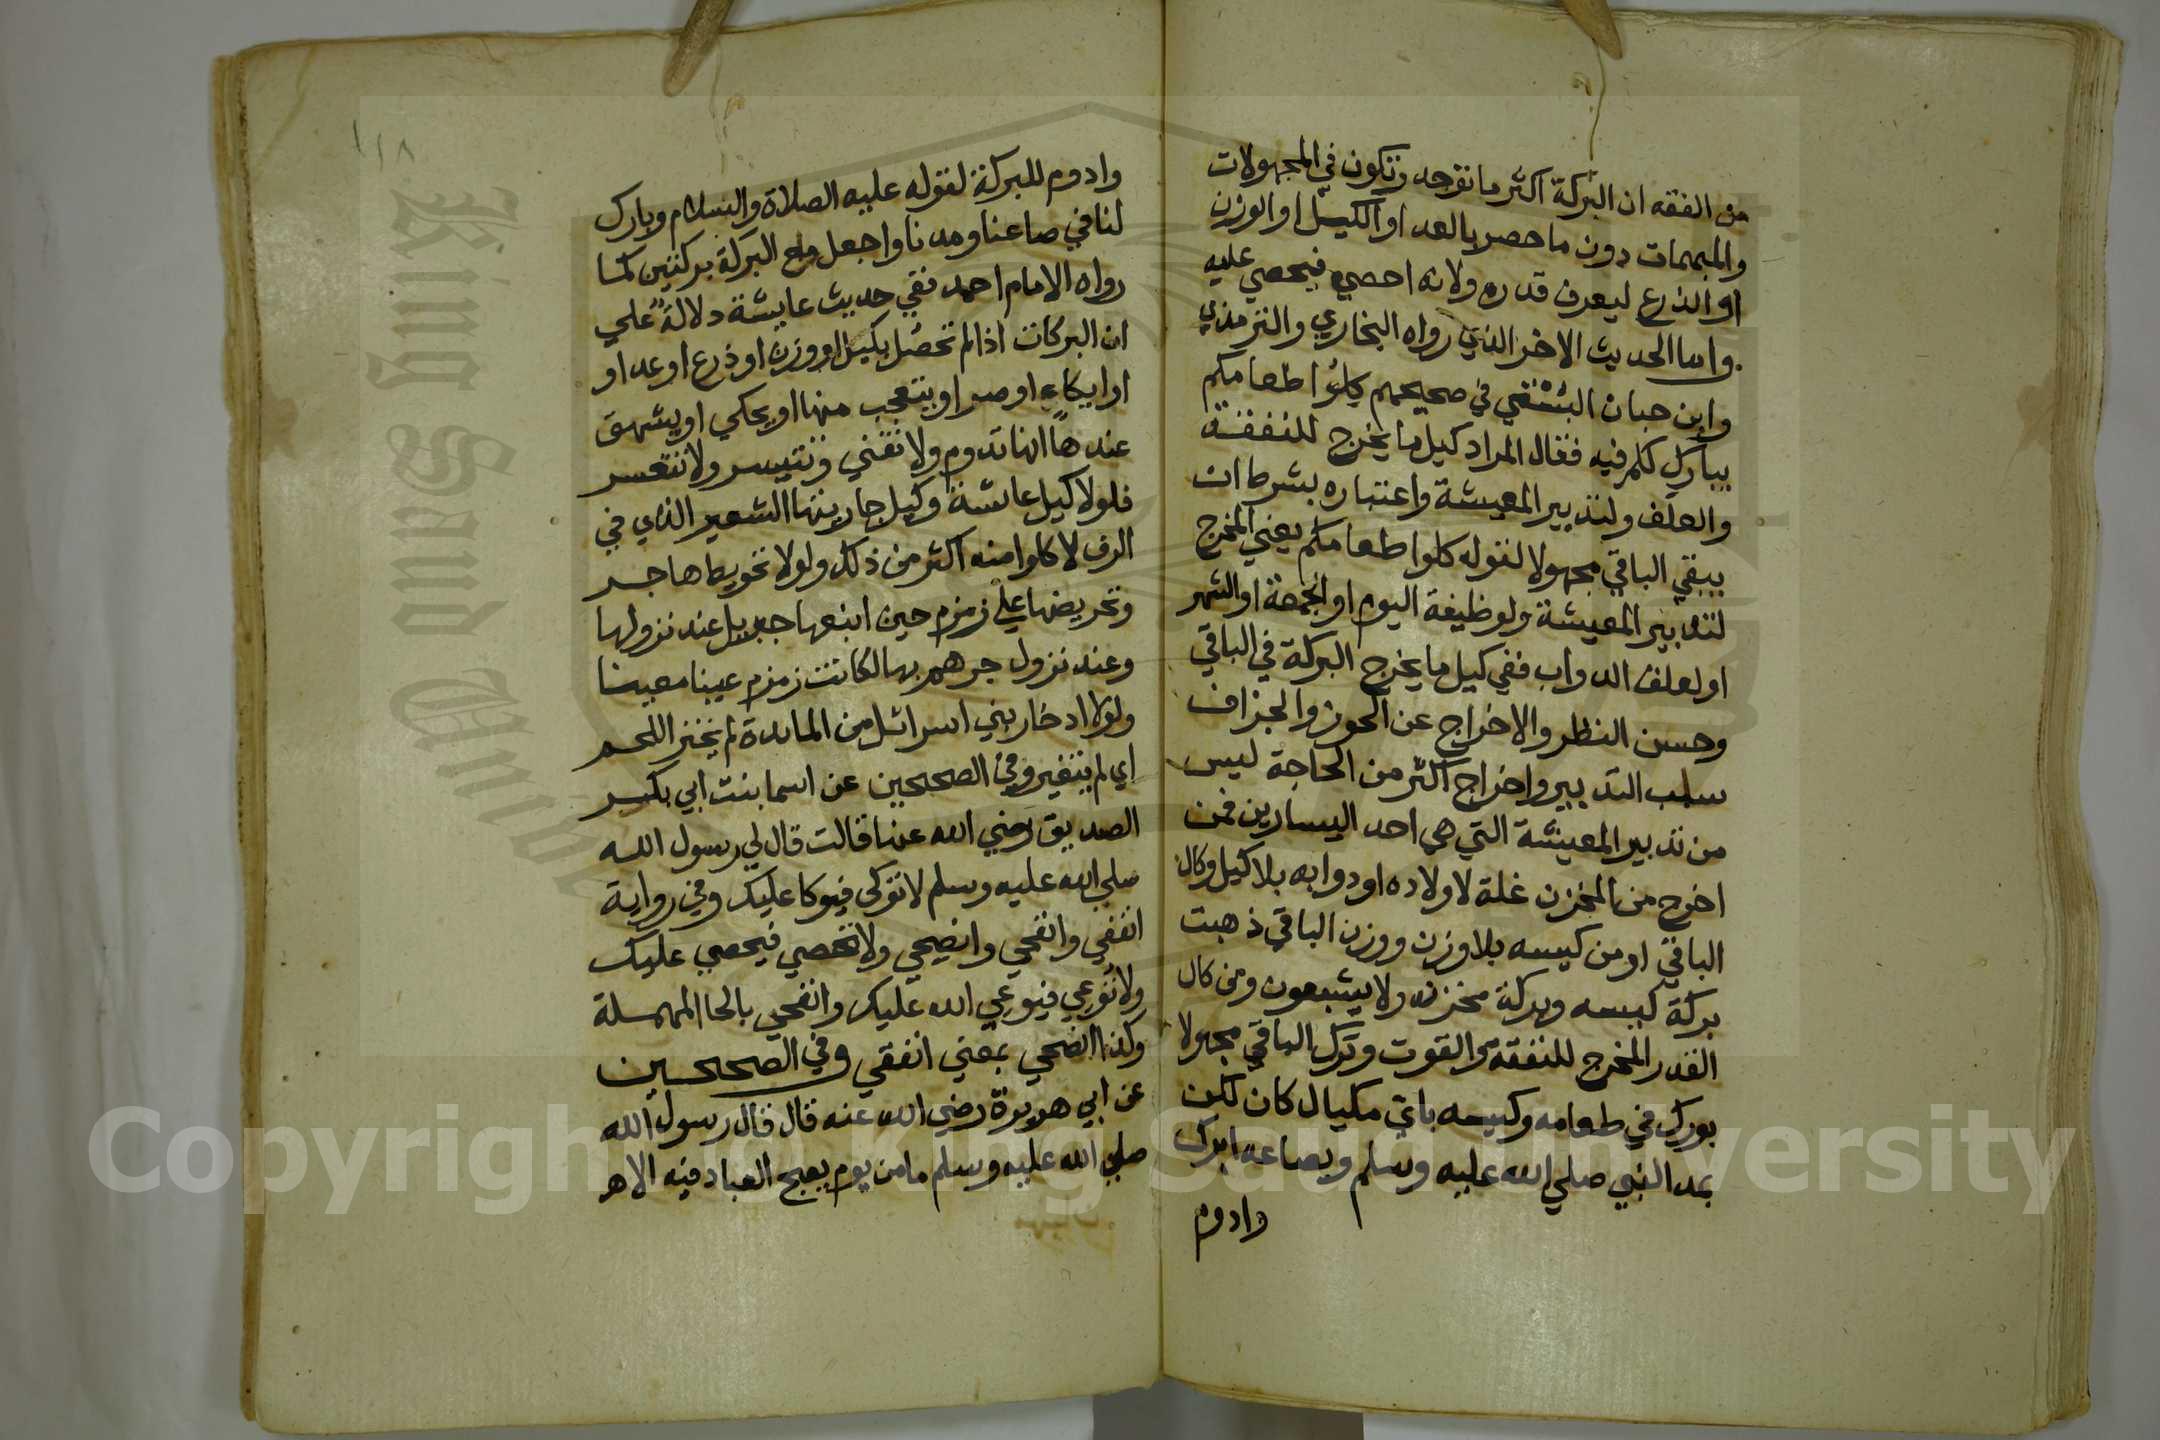 من الفقه ان البركة اكثر ما توجد وتكون في المجهولات
والمبهمات دون ما حصر بالعد او الكيل او الوزن
او الذرع ليعرف قدره ولانه احصي فيحصي عليه
واما الحديث الاخر الذي رواه البخاري والترمذي
وابن حبان البستي في صحيحهم كيلوا طعامكم
يبارك لكم فيه فقال المراد كيل ما يخرج للنفقة
والعلف ولتدبير المعيشة واعتباره بشرط ان
يبقي الباقي مجهولا لقوله كلوا طعامكم يعني المخرج
لتدبير المعيشة ولوظيفة اليوم او الجمعة او الشهر
او لعلف الدواب ففي كيل ما يخرج البركة في الباقي
وحسن النظر والاخراج عن الحوز والجزاف
سلب التدبير واخراج اكثر من الحاجة ليس
من تدبير المعيشة التي هي احد اليسارين فمن
اخرج من المخزن غلة لاولاده او دوابه بلا كيل وكال
الباقي او من كيسه بلا وزن ووزن الباقي ذهبت
بركة كيسه وبركة مخزنه ولا يشبعون ومن كال
القدر المخرج للنفقة والقوت وترك الباقي مجهولا
بورك في طعامه وكيسه باي مكيال كان لكن
بمد النبي صلي الله عليه وسلم وبصاعه ابرك
وادوم
١١٨
وادوم للبركة لقوله عليه الصلاة والسلام وبارك
لنا في صاعنا ومدنا واجعل مع البركة بركتين كما
رواه الامام احمد نفي حديث عايشة دلالة علي
ان البركات اذا لم تحصل بكيل او وزن او ذرع او عد او
او ايكاء او صر او يتعجب منها او يحكي او يشهق
عندها انها تدوم ولا تفني وتتيسر ولا تتعسر
فلولا كيل عائشة وكيل جاريتها الشعير الذي في
الرف لاكلوا منه اكثر من ذلك ولولا تحويط هاجر
وتحريضها علي زمزم حين انبعها جبريل عند نزولها
وعند نزول جرهم بها لكانت زمزم عينا معينا
ولولا ادخار بني اسرائيل من المائدة لم يخنز اللحم
اي لم يتغير وفي الصحيحين عن اسما بنت ابي بكر
الصديق رضي الله عنها قالت قال لي رسول الله
صلي الله عليه وسلم لا توكي فيوكا عليك وفي رواية
انفقي وانفحي وانضحي ولا تحصي فيحصي عليك
ولا توعي فيوعي الله عليك وانفحي بالحا المهملة
وكذا انضحي بمعني انفقي وفي الصحيحين
عن ابي هريرة رضي الله عنه قال قال رسول الله
صلي الله عليه وسلم ما من يوم يصبح العباد فيه الا هر
King Saud University
Copyright © King Saud University